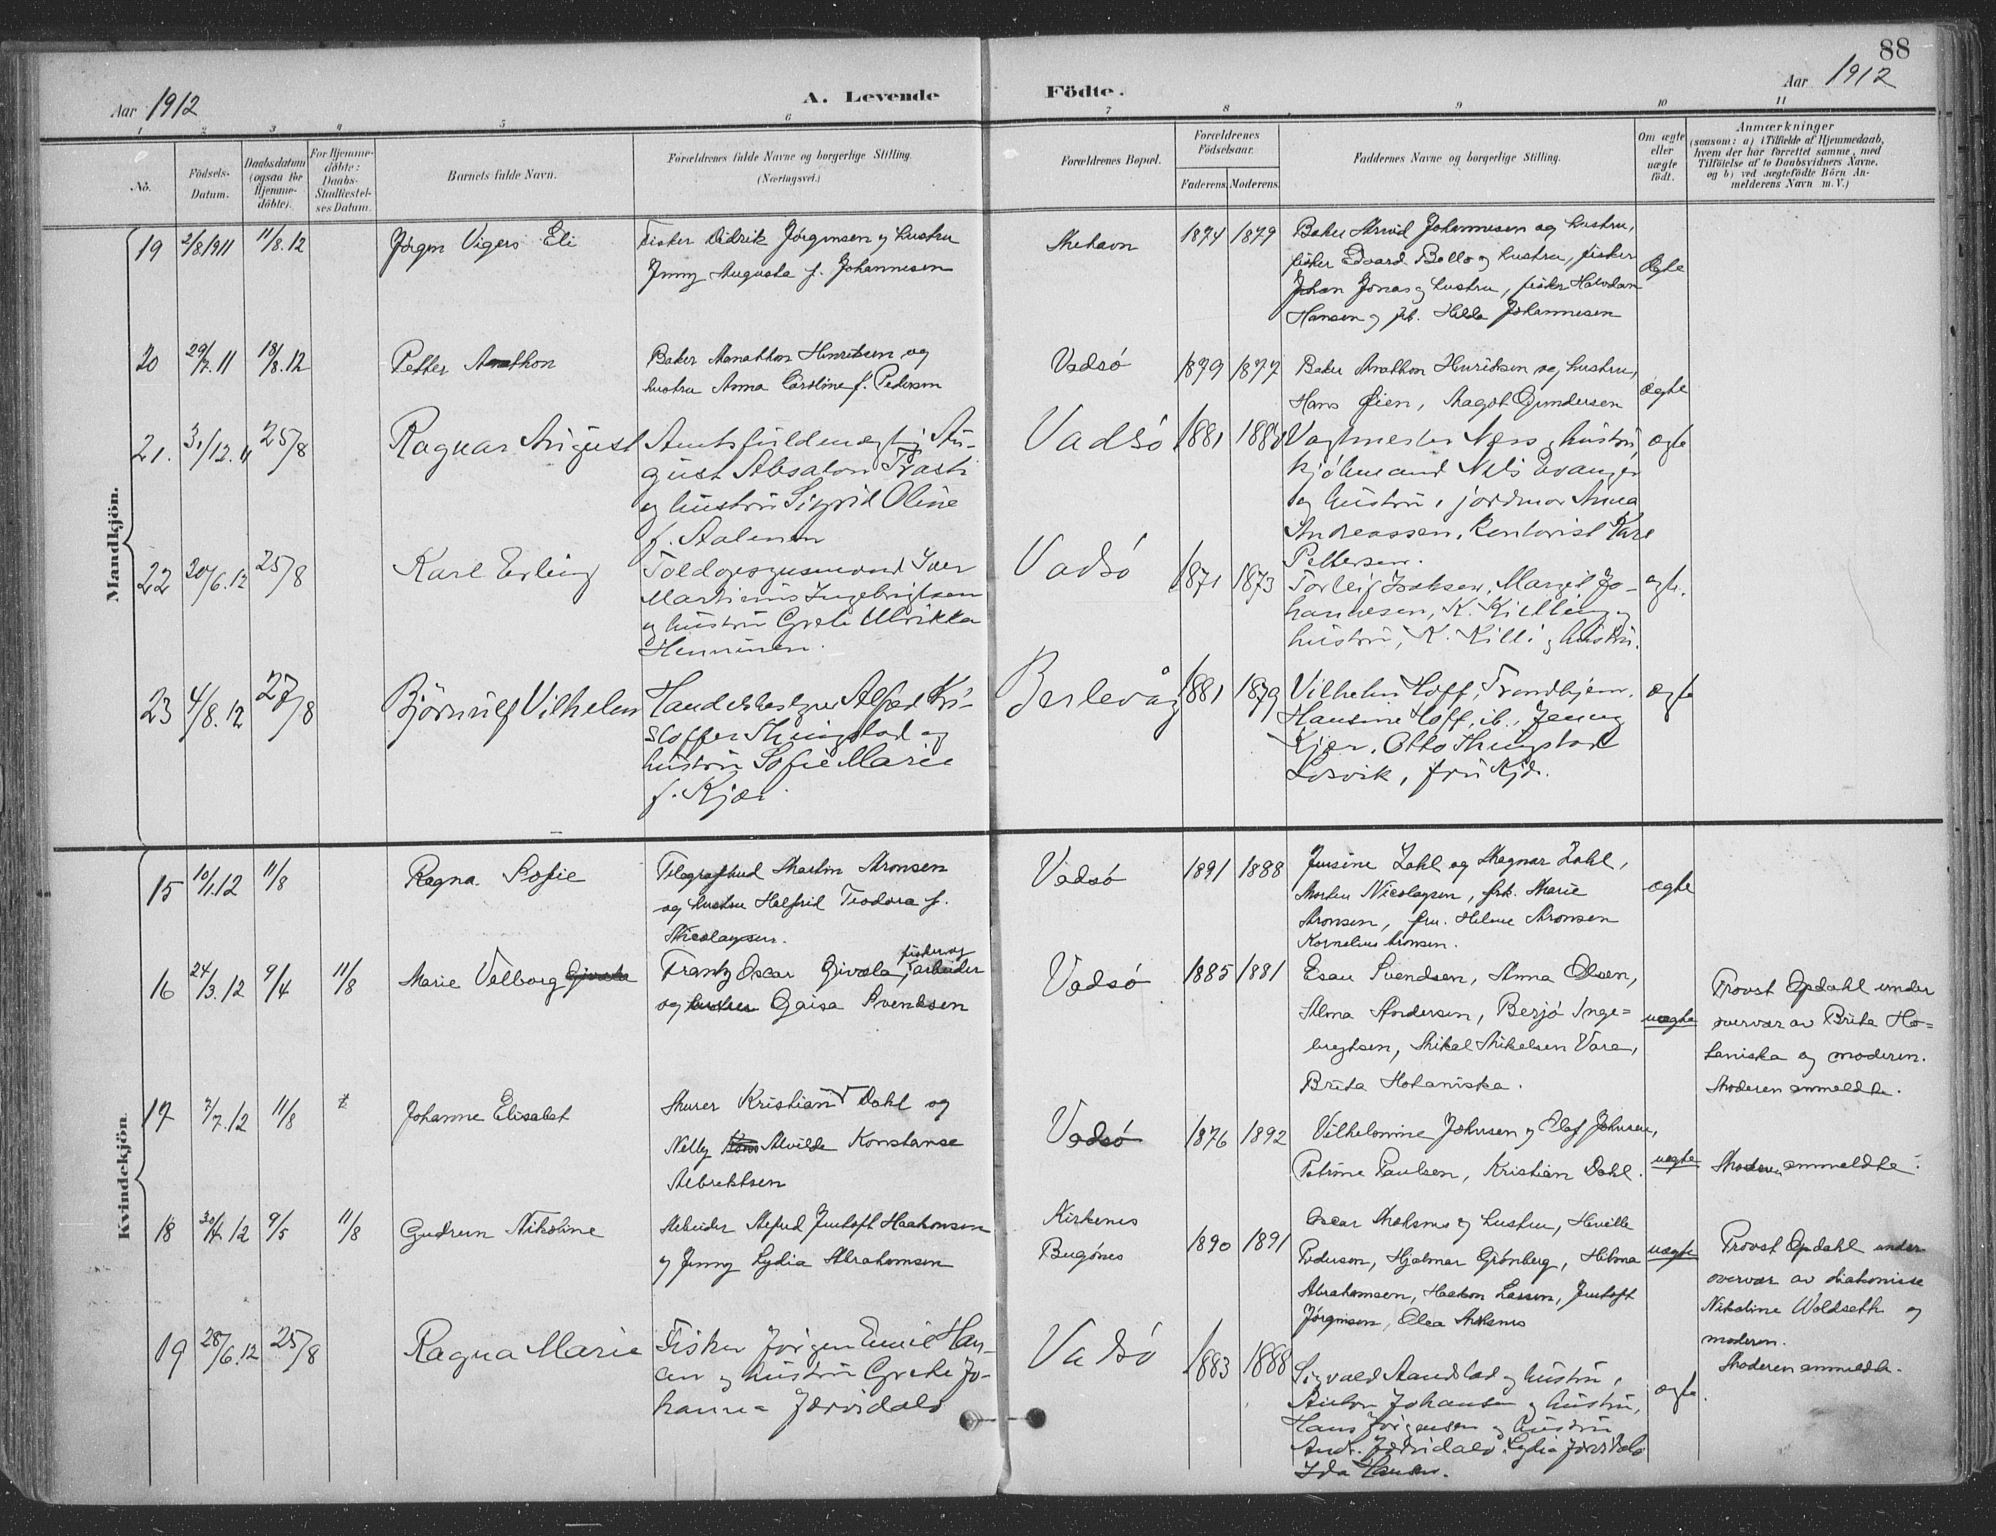 88
Aar 1912
A. Levende
Födte.
Aar 1912
1 2 3 4 5 6 7 8 9 10 11
No.
Födsels-
Datum.
Daabsdatum
(ogsaa for
Hjemme-
döbte).
For Hjemme-
döbte:
Daabs-
Stadfæstel-
ses Datum.
Barnets fulde Navn.
Forældrenes fulde Navne og borgerlige Stilling.
(Næringsvei.)
Forældrenes Bopæl.
Forældrenes
Födselsaar.
Faderens.
Moderens.
Faddernes Navne og borgerlige Stilling.
Om ægte
eller
uægte
födt.
Anmærkninger
(saasom: a) i Tilfælde af Hjemmedaab,
hvem der har forrettet samme, med
Tilföielse af to Daabsvidners Navne,
og b) ved uægtefödte Börn An-
melderens Navn m. V.)
Mandkjön.
19
2/8.1911
11/8.12
Jørgen Vigers Eli
Fisker Didrik Jørgensen og hustru
Jenny Augusta f. Johannesen
1874
1879
Baker Arvid Johannesen og hustru,
fisker Edvard Bollo og hustru, fisker
Johan Jonas og hustru, fisker Halvdan
Hansen og frk. Hilda Johannesen
ægte
20
29/7.11
18/8.12
Petter Anathon
Baker Anathon Henriksen og
hustru Anna Caroline f. Pedersen
Vadsö
1879
1877
Baker Anathon Henriksen og hustru,
Hans Øien, Magot Gundersen
ægte
21.
31/12.11
25/8
Ragnar August
Amtsfuldmægtig Au-
gust Absalon
og hustru Sigrid Oline
f. Aalenen
Vadsö
1881
Vagtmester Næss og hustru
kjöbmand Nils Evanger
og hustru, jordmor Anna
Andreassen, kontorist Kåre
Pettersen.
ægte
22
20/6.12
25/8
Karl Erling
Toldopsynsmand Iver
Martinus Ingebrigtsen
og hustru Grete Ulrikka
Henninen.
Vadsö
1871
1873
Torleif Isaksen, Margit Jo-
hannesen, K. Kjelling og
hustru, K. Killi og hustru.
ægte.
23
4/8.12
27/8
Björnulf Vilhelm
Handelsbestyrer Alfred Kri-
stoffer Thingstad og
hustru Sofie Marie
f. Kjær.
Berlevåg
1881
1879
Vilhelm Hoff, Trondhjem.
Hansine Hoff, ib., Jenny
Kjær, Otto Thingstad
Losvik, fru Kjær.
ægte
Kvindekjön.
15
10/1.12
11/8
Ragna Sofie
Telegrafbud Martin Aronsen
og hustru Halfrid Teodora f.
Nicolaysen.
Vadsö
1891
1888
Jensine Dahl og Ragnar Dahl,
Morten Nicolaysen, frk. Marie
Aronsen, fru. Helene Aronsen
Kornelius Aronsen.
ægte
16
24/3.12
9/4
11/8
Marie Valborg
Frantz Oscar Givæla, fisker og arbeider
og hustru Gaisa Svendsen
Vadsö
1885
1881
Esau Svendsen, Anna Olsen,
Alma Andersen, Berjö Inge=
bregtsen, Mikal Mikalsen Vara,
Brita Hotaniska.
uægte
Provst Opdahl under
overvær av Brita Ho=
taniska og moderen.
Moderen anmeldte.
17
7/7.12
11/8
Johanne Elisabet
Murer Kristian Dahl og
Nelly Alvilde Konstanse
Albrektsen
Vadsö
1876
1892
Vilhelmine Johnsen og Olaf Johnsen,
Petrine Paulsen, Kristian Dahl.
uægte
Moderen anmeldte.
18
30/4.12
9/5
11/8
Gudrun Nikoline
Arbeider Alfred Justoft Haakonsen
og Jenny Lydia Abrahamsen
Kirkenes
Bugönes
1890
1891
Oscar Moksnes og hustru,
Pedersen, Hjalmar Grönberg, Helma
Abrahamsen, Haakon Larsen, Justoft
Jörgensen, Olea Moksnes
uægte
Provst Opdahl under
overvær av diakonisse
Nikoline Woldseth og
moderen.
Moderen anmeldte.
19
28/6.12
25/8
Ragna Marie
Fisker Jörgen Emil Han-
sen og hustru Grete Jo-
hanna Jærvidalo
Vadsö
1883
1888
Sigvald Sandstad og hustru,
Anton Johansen og hustru,
Hans Jörgensen og hustru
And. Jærvidalo, Lydia Jærvidalo
Ida Hansen.
ægte.